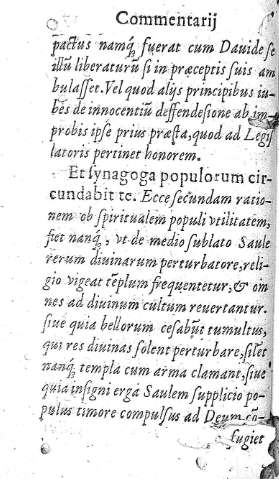 Commentarij
pactus namq́; fuerat cum Dauide se
illũ liberaturũ si in præceptis suis am
bulasset. Vel quod alijs principibus iu-
bes de innocentiũ deffendesione ab im
probis ipse prius præsta, quod ad Legis
latoris pertinet honorem.
Et synagoga populorum cir-
cundabit te. Ecce secundam ratio-
nem ob spiritualem populi vtilitatem,
fiet nanq́;, vt de medio sublato Saule
rerum diuinarum perturbatore, reli-
gio vigeat tẽplum frequentetur, & om
nes ad diuinum cultum reuertantur.
siue quia bellorum cesabũt tumultus,
qui res diuinas solent perturbare, silet
nanq́; templa cum arma clamant, siue
quia insigni erga Saulem supplicio po-
pulus timore compulsus ad Deum cõ-
fugiet